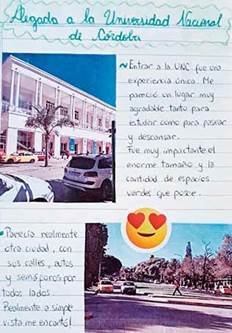 Llegada a la Universidad Nacional
de Córdoba
~ Entrar a la UNC fue una
experiencia única. Me
pareció un lugar muy
agradable tanto para
estudiar como para pasear
y descansar.
Fue muy impactante el
enorme tamaño y la
cantidad de espacios
verdes que posee.
• Parecía realmente
otra ciudad, con
sus calles, autos
y semáforos por
todos lados.
Realmente a simple
vista me encantó!